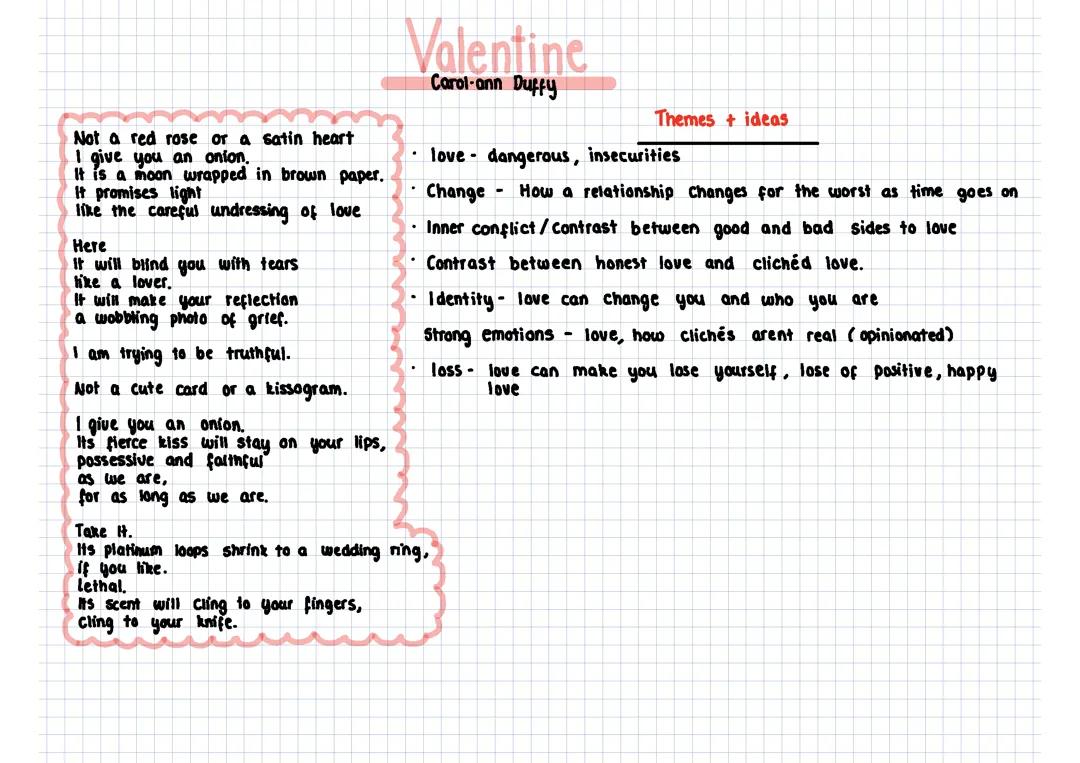 Valentine
Carol-ann Duffy
Not a red rose or a satin heart
I give you an onion.
It is a moon wrapped in brown paper.
It promises light
like the careful undressing of love
Here
It will blind you with tears
like a lover.
It will make your reflection
a wobbling photo of grief.
I am trying to be truthful.
Not a cute card or a kissogram.
I give you an onion.
Its fierce kiss will stay on your lips,
possessive and faithful
as we are,
for as long as we are.
Take it.
Its platinum loops shrink to a wedding ring,
if you like.
Lethal.
Its scent will cling to your fingers,
cling to your knife.
Themes + ideas
· love - dangerous, insecurities
· Change - How a relationship changes for the worst as time goes on
· Inner conflict / Contrast between good and bad sides to love
· Contrast between honest love and clichéd love.
· Identity - love can change you and who you are
Strong emotions - love, how clichés arent real (opinionated)
· loss - love can make you lose yourself, lose of positive, happy
love